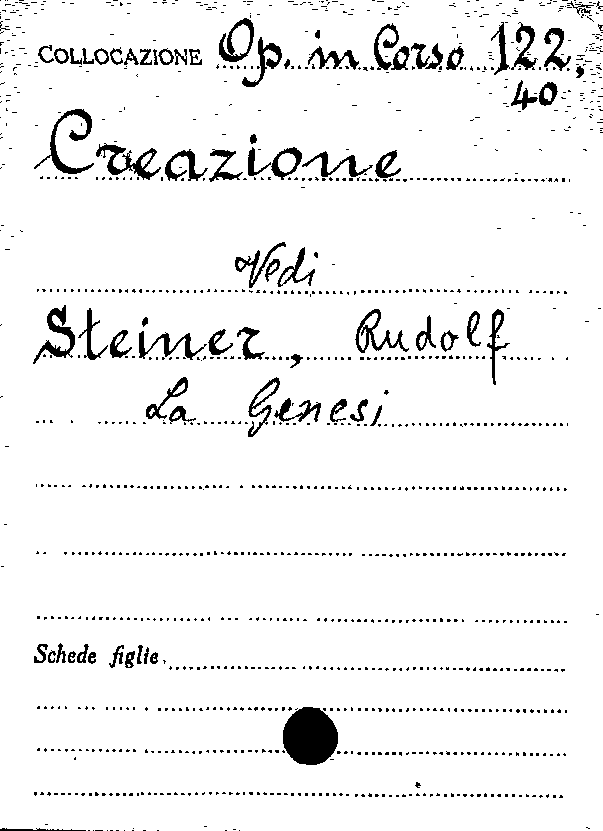 COLLOCAZIONE Op. in Corso 122,
40
Creazione
Vedi
Steiner, Rudolf
La Genesi
Schede figlie